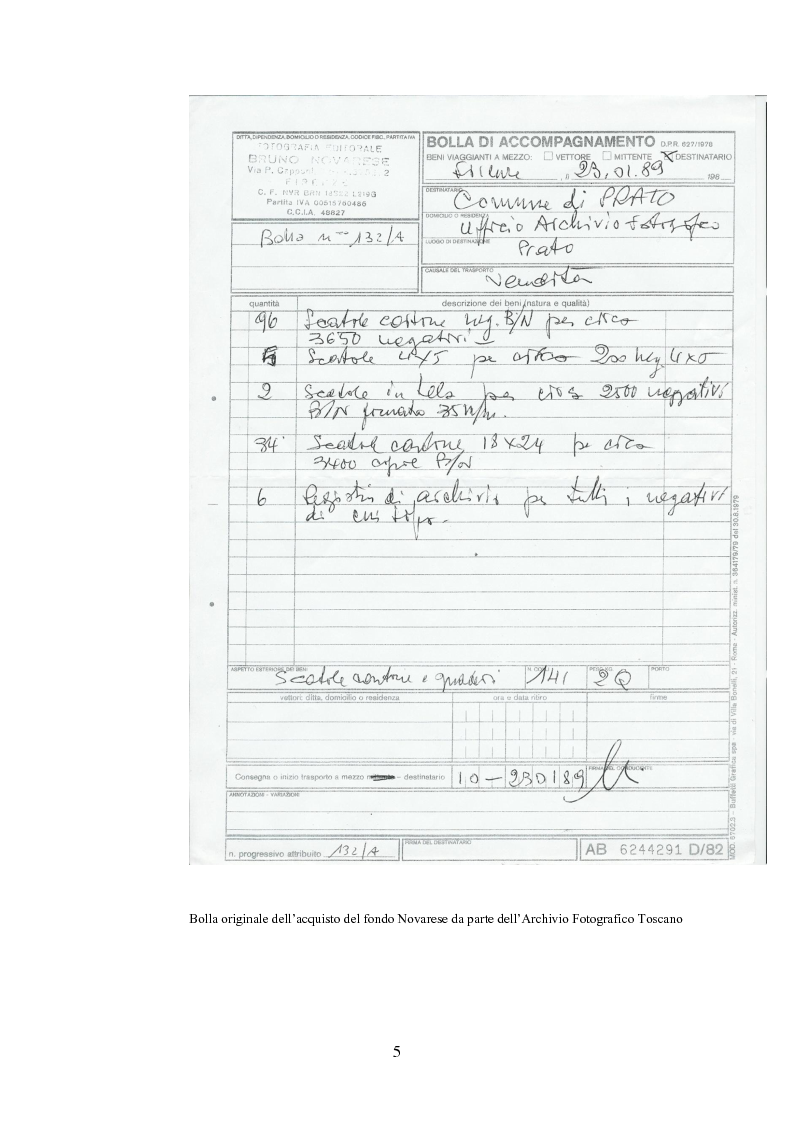 DITTA, DIPENDENZA, DOMICILIO O RESIDENZA, CODICE FISC., PARTITA IVA
FOTOGRAFIA EDITORIALE
BRUNO NOVARESE
Via P.
FIRENZE
C. F. NVR BRN
Partita IVA 00515760486
C.C.I.A. 48827
Bolla n 132/A
BOLLA DI ACCOMPAGNAMENTO D.P.R. 627/1978
BENI VIAGGIANTI A MEZZO: VETTORE MITTENTE X DESTINATARIO
Firenze, il 23.01.89 198
DESTINATARIO
Comune di PRATO
DOMICILIO O RESIDENZA
Ufficio Archivio fotografico
LUOGO DI DESTINAZIONE
Prato
CAUSALE DEL TRASPORTO
Vendita
quantità descrizione dei beni (natura e qualità)
96 Scatole cartone neg. B/N per circa
3650 negativi
Scatole 4x5 per circa 200 neg. 4x5
2 Scatole in tela per circa 2500 negativi
B/N formato 35 m/m.
34 Scatole cartone 18x24 per circa
3400 copie B/N
6 Registri di archivio per tutti i negativi
di cui sopra.
ASPETTO ESTERIORE DEI BENI
Scatole cartone e quaderni
N. COLLI
141
PESO KG.
2Q
PORTO
vettori: ditta, domicilio o residenza ora e data ritiro firme
Consegna o inizio trasporto a mezzo – destinatario 10-230189
FIRMA DEL CONDUCENTE
ANNOTAZIONI - VARIAZIONI
n. progressivo attribuito 132/A
FIRMA DEL DESTINATARIO
AB 6244291 D/82
MOD. 6702.3 - Buffetti Grafica spa - via di Villa Bonelli, 21 - Roma - Autorizz. minist. n. 364179/79 del 30.8.1979
Bolla originale dell'acquisto del fondo Novarese da parte dell'Archivio Fotografico Toscano
5